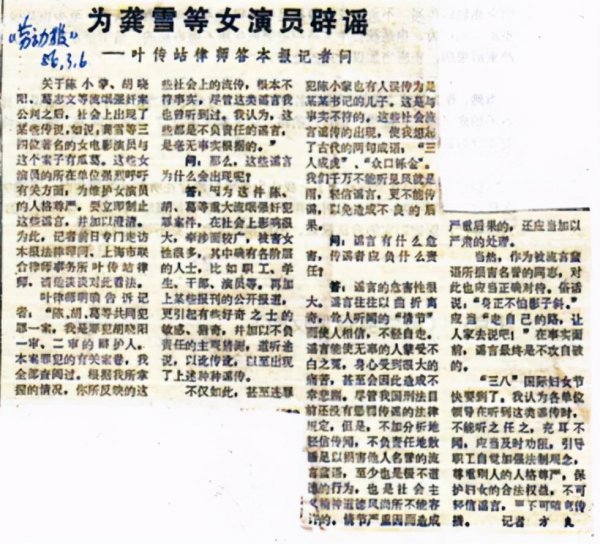 为龚雪等女演员辟谣
——叶传岵律师答本报记者问
《劳动报》
86.3.6
关于陈小蒙、胡晓
阳、葛志文等流氓强奸案
公判之后，社会上出现了
某些传说，如说，龚雪等三
四位著名的女电影演员与
这个案子有瓜葛。这些女
演员的所在单位强烈呼吁
有关方面，为维护女演员
的人格尊严，要立即制止
这些谣言，并加以澄清。
为此，记者前日专门走访
本报法律顾问、上海市联
合律师事务所叶传岵律
师，请他谈谈对此看法。
叶律师明确告诉记
者：“陈、胡、葛等共同犯
罪一案，我是罪犯胡晓阳
一审、二审的辩护人。
本案罪犯的有关案卷，我
全部查阅过。根据我所掌
握的情况，你所反映的这
些社会上的流传，根本不
符事实，尽管这类谣言我
也曾听到过。我认为，这
些都是不负责任的谣言，
是毫无事实根据的。”
问：那么，这些谣言
为什么会出现呢？
答：因为这件陈、
胡、葛等重大流氓强奸犯
罪案件，在社会上影响很
大，牵涉面较广，被害女
性很多，其中确有各阶层
的人士，比如职工、学
生、干部、演员等，再加
上某些报刊的公开报道，
更引起有些好奇之士的
敏感、猎奇，并加以不负
责任的主观猜测，道听途
说，以讹传讹，以至出现
了上述种种谣传。
不仅如此，甚至连罪
犯陈小蒙也有人误传为是
某某书记的儿子，这是与
事实不符的。这些社会流
言谣传的出现，使我想起
了古代的两句成语，“三
人成虎”、“众口铄金”。
我们千万不能听见风就是
雨，轻信谣言，更不能传
谣，以免造成不良的后
果。
问：谣言有什么危
害，传谣者应负什么责
任？
答：谣言的危害性很
大。谣言往往以曲折离
奇、耸人听闻的“情节”
而使人相信，不轻自走。
谣言能使无辜的人蒙受不
白之冤，身心受到很大的
痛苦，甚至会因此造成不
幸悲剧。尽管我国刑法目
前还没有惩罚传谣的法律
规定，但是，不加分析地
轻信传闻，不负责任地散
播足以损害他人名誉的流
言蜚语，至少也是极不道
德的行为，也是社会主
义精神道德风尚所不能容
许的。情节严重因而造成
严重后果的，还应当加以
严肃的处理。
当然，作为被流言蜚
语所损害名誉的同志，对
此也应当正确对待。俗话
说：“身正不怕影子斜。”
应当“走自己的路，让
人家去说吧！”在事实面
前，谣言最终是不攻自破
的。
“三八”国际妇女节
快要到了，我认为各单位
领导在听到这类谣传时，
不能听之任之，充耳不
闻，应当及时劝阻，引导
职工自觉加强法制观念，
尊重别人的人格尊严，保
护妇女的合法权益，不可
轻信谣言，更不可随意传
播。 记者 才良